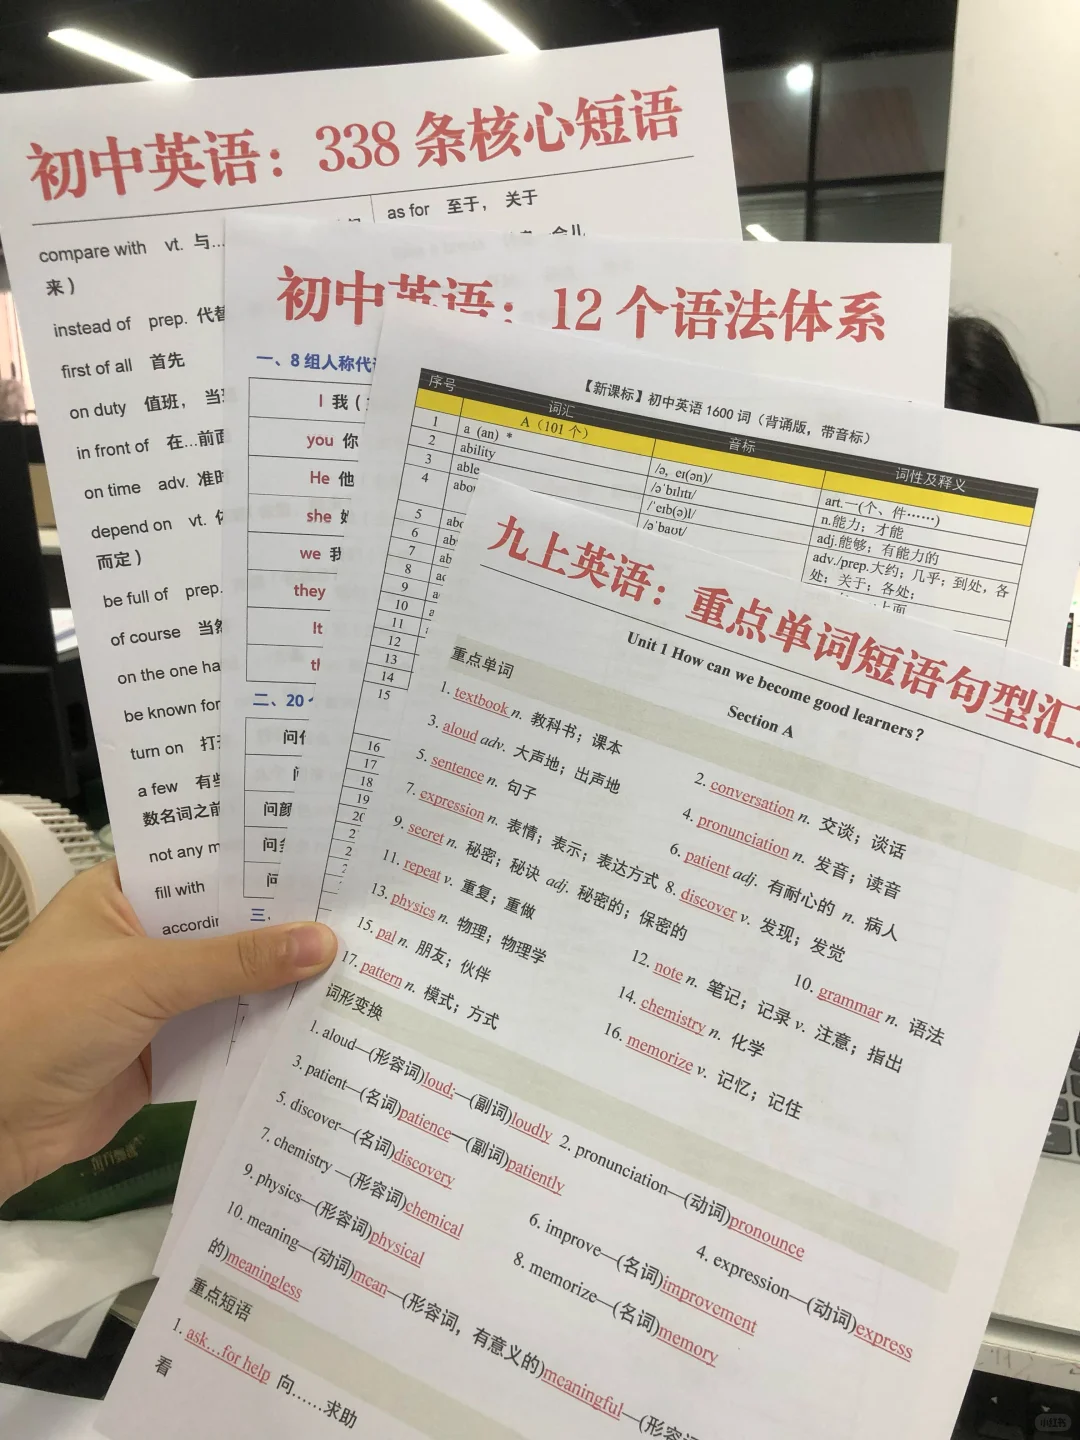 初中英语：338 条核心短语
compare with vt. 与...
来）
instead of prep. 代替
first of all 首先
on duty 值班，当
in front of 在...前面
on time adv. 准时
depend on vt.
而定）
be full of prep.
of course 当然
on the one ha
be known for
turn on 打开
a few 有些
数名词之前
not any m
fill with
accordin
as for 至于，关于
初中英语：12 个语法体系
一、8 组人称代
I 我（
you 你
He 他
she 她
we 我
they
It
th
二、20
问什
问
问颜
问
问
三、
【新课标】初中英语 1600 词（背诵版，带音标）
序号 词汇 音标 词性及释义
A（101 个）
1 a (an) * /ə, eɪ(ən)/ art.一(个、件……)
2 ability /əˈbɪlɪtɪ/ n.能力；才能
3 able /ˈeɪb(ə)l/ adj.能够；有能力的
4 abou /əˈbaʊt/ adv./prep.大约；几乎；到处，各
处；关于；各处；
5 abo 上面
6 ab
7 ab
8 ac
9 a
10 a
11
12
13
14
15
16
17
18
19
20
九上英语：重点单词短语句型汇
Unit 1 How can we become good learners?
Section A
重点单词
1. textbook n. 教科书；课本
2. conversation n. 交谈；谈话
3. aloud adv. 大声地；出声地
4. pronunciation n. 发音；读音
5. sentence n. 句子
6. patient adj. 有耐心的 n. 病人
7. expression n. 表情；表示；表达方式 8. discover v. 发现；发觉
9. secret n. 秘密；秘诀 adj. 秘密的；保密的
10. grammar n. 语法
11. repeat v. 重复；重做
12. note n. 笔记；记录 v. 注意；指出
13. physics n. 物理；物理学
14. chemistry n. 化学
15. pal n. 朋友；伙伴
16. memorize v. 记忆；记住
17. pattern n. 模式；方式
词形变换
1. aloud—(形容词)loud;—(副词)loudly 2. pronunciation—(动词)pronounce
3. patient—(名词)patience—(副词)patiently
4. expression—(动词)express
5. discover—(名词)discovery
6. improve—(名词)improvement
7. chemistry —(形容词)chemical
8. memorize—(名词)memory
9. physics—(形容词)physical
10. meaning—(动词)mean—(形容词，有意义的)meaningful—(形容
的)meaningless
重点短语
1. ask…for help 向……求助
看
小红书